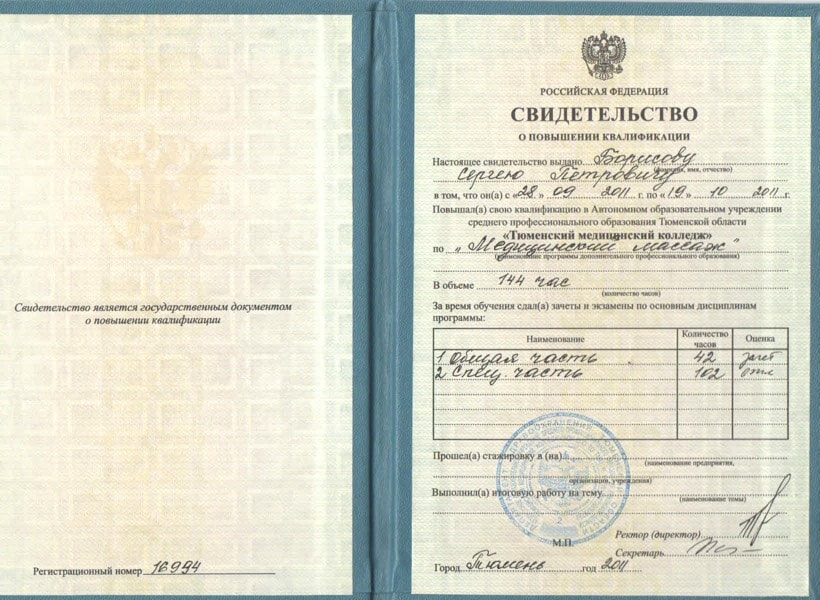 Свидетельство является государственным документом
о повышении квалификации
Регистрационный номер 16994
РОССИЙСКАЯ ФЕДЕРАЦИЯ
СВИДЕТЕЛЬСТВО
О ПОВЫШЕНИИ КВАЛИФИКАЦИИ
Настоящее свидетельство выдано Борисову
(фамилия, имя, отчество)
Сергею Петровичу
в том, что он(а) с «28» 09 2011 г. по «19» 10 2011 г.
Повышал(а) свою квалификацию в Автономном образовательном учреждении
среднего профессионального образования Тюменской области
«Тюменский медицинский колледж»
по „Медицинский массаж"
(наименование программы дополнительного профессионального образования)
В объеме 144 час
(количество часов)
За время обучения сдал(а) зачеты и экзамены по основным дисциплинам
программы:
Наименование Количество часов Оценка
1 Общая часть 42 зачет
2 Спец. часть 102 отл
Прошел(а) стажировку в (на)
(наименование предприятия,
организации, учреждения)
Выполнил(а) итоговую работу на тему
(наименование темы)
Ректор (директор)
М.П.
Секретарь
Город Тюмень год 2011